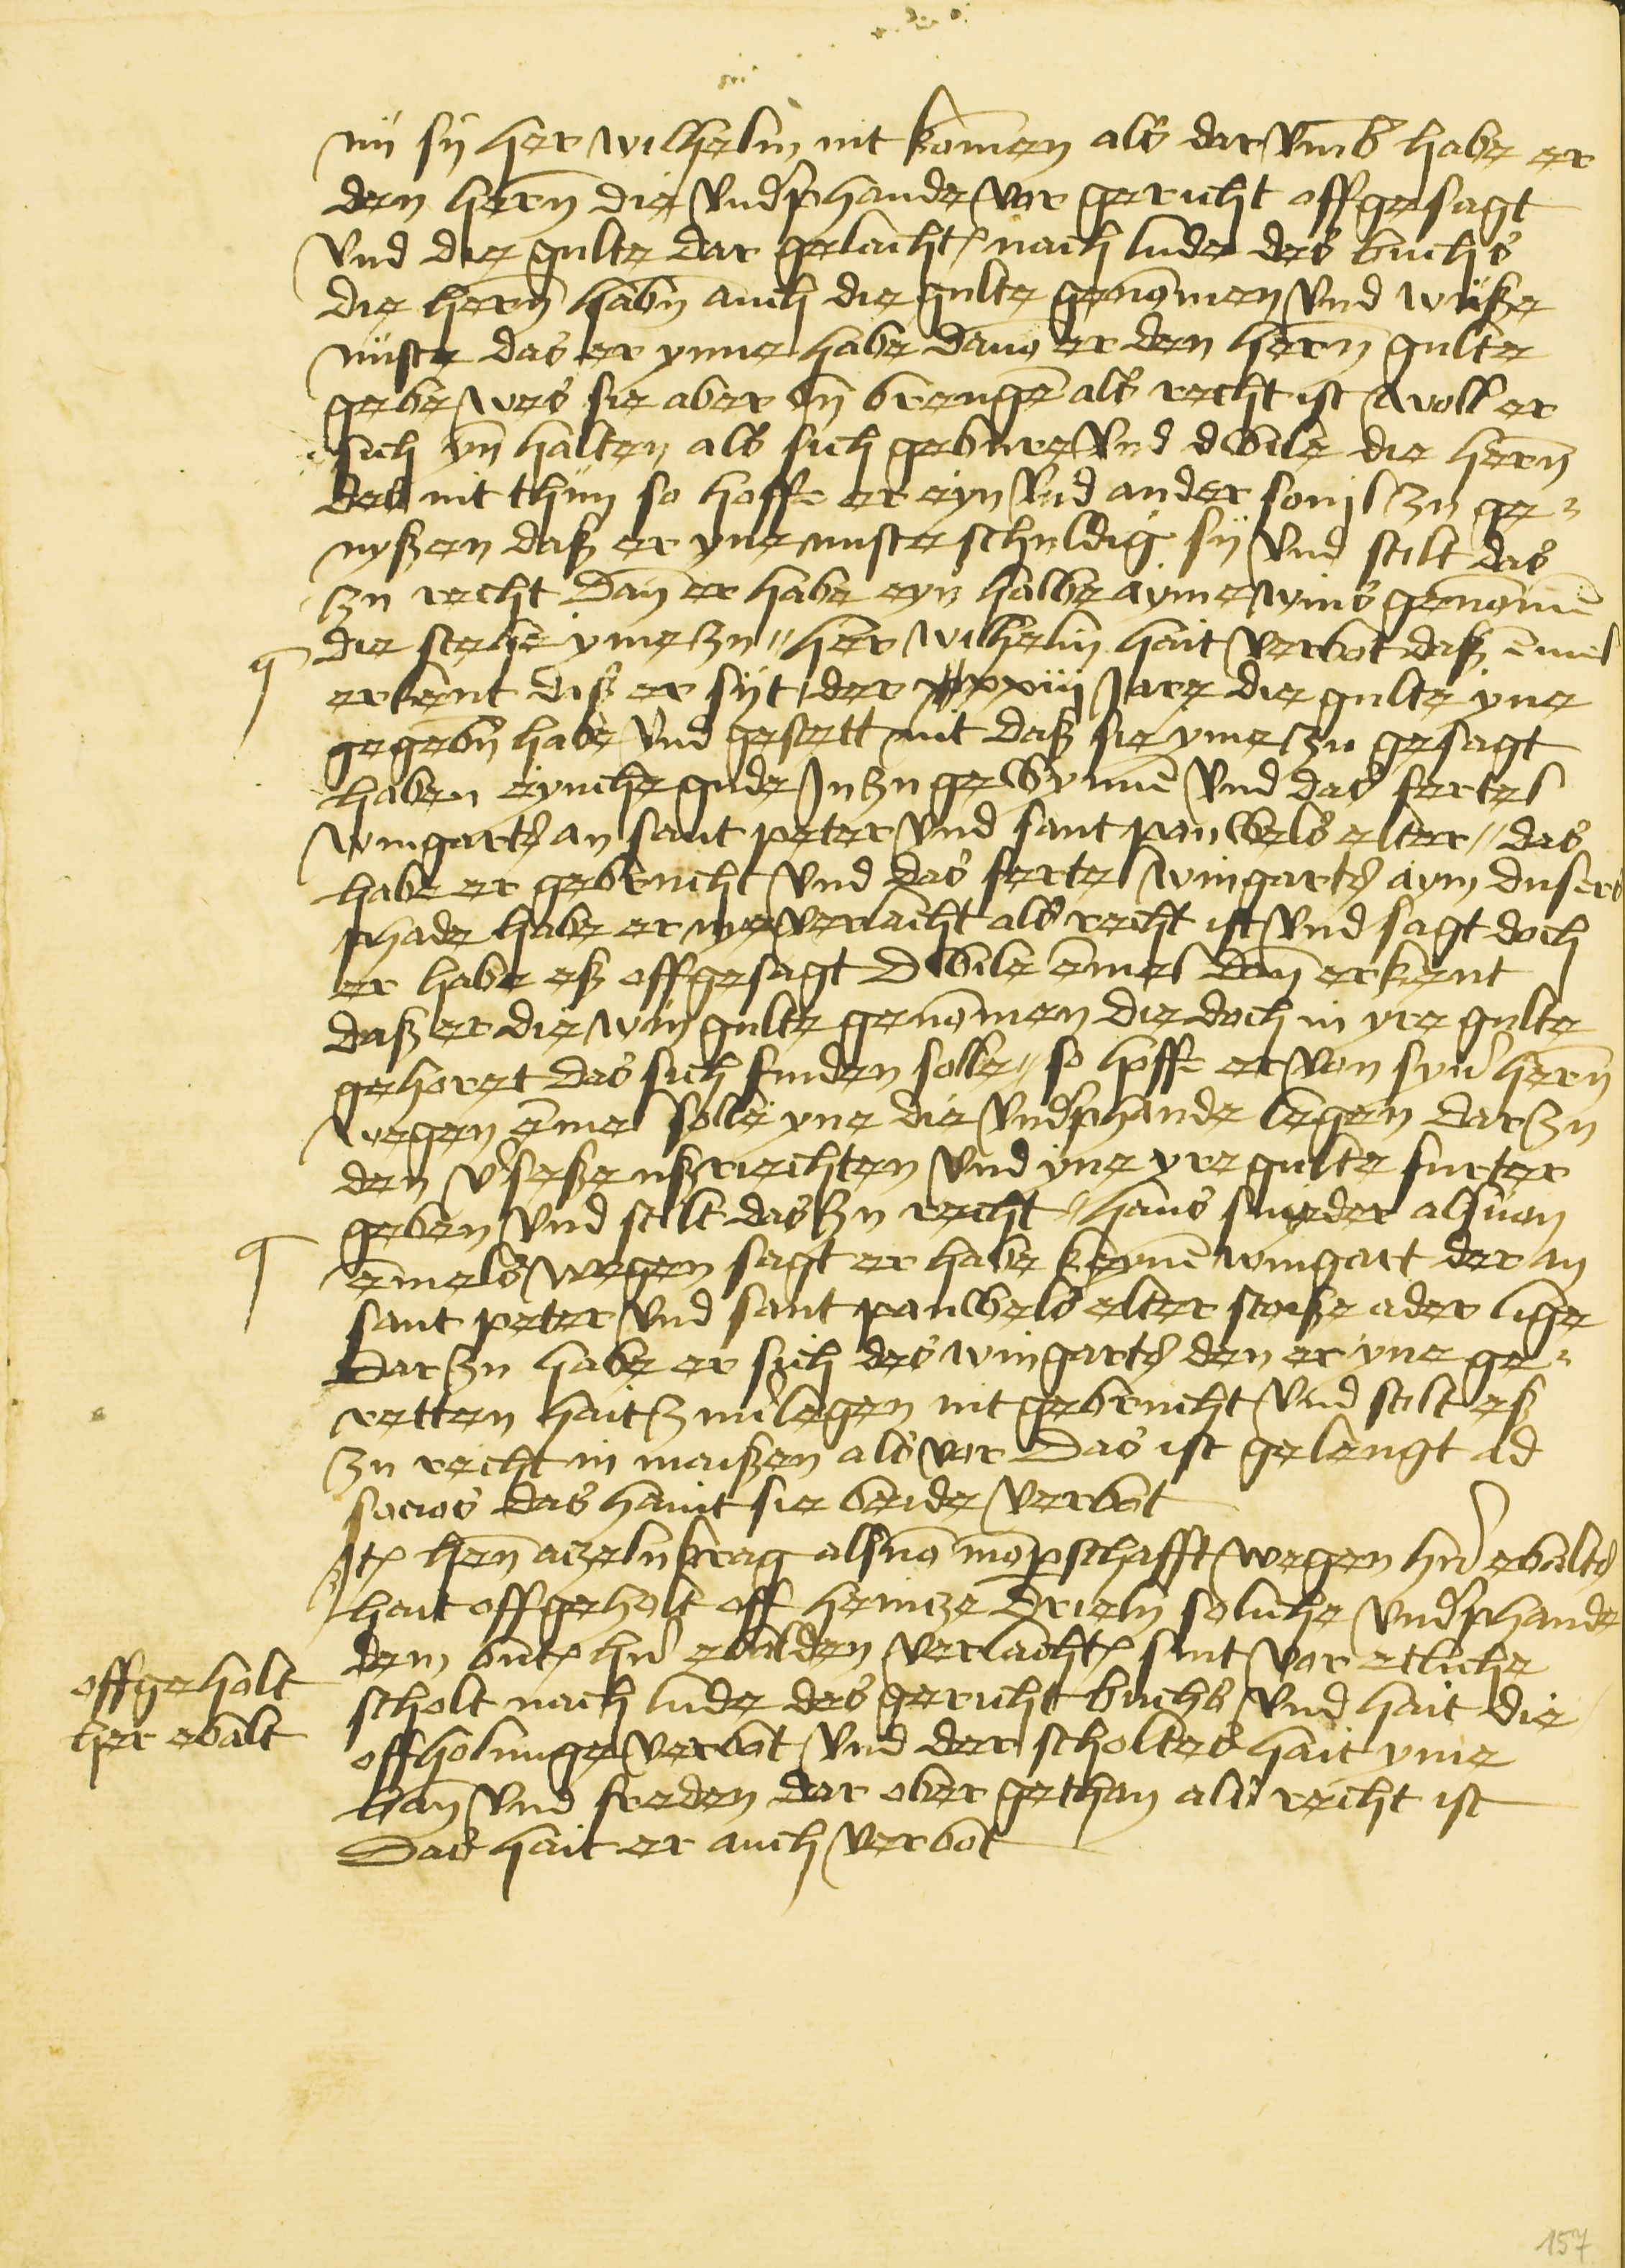 nů sij her wilhelm nit komen als dar vmb habe er
den hern die vndphande vor gericht offgesagt
vnd die gulte dar gelacht nach lude des buchs
die hern habn auch die gulte genomen vnd wiße
nuste das er ynne habe dauo er den hern gulte
gebe wes sie aber yn brengen als recht ist woll er
sich yn halten als sich gebure vnd dwile die hern
das nit thun so hoffe er eyn vnd ander somil zu ge
nyßen daß er yne nuste schuldig sij vnd stelt das
zu recht Dan er habe eyn halbe ayme wins genomen
die stehe yme zu her wilhelm hait verbot daß emel
erkent diß er sijt der xxiiij jare die gulte yne
gegebn habe vnd gesett mit daß sie yme zu gesagt
haben eyniche gude In zu gewynnen vnd das fertel
wingart an sant peter vnd sant pauwels elter das
habe er gebrucht vnd das fertel wingart aym dusers
phade habe er nye verlacht als recht ist vnd sagt doch
er habe eß offgesagt Dwile emel dan erkent
daß er die win gulte genomen die doch in yre gulte
gehoret das sich finden solle so hoffe er von syner hern
wegen emel solle yne die vndphande legen dar zu
den vseße ußriechten vnd yne yre gulte furter
geben vnd stelt das zu recht hans snyeder als von
emels wegen sagt er habe keynen wingart der an
sant peter vnd sant pauwels elter stoiße ader lige
Dar zu habe er sich des wingart den er yne ge
retten hait zuuerlegen nit gebrucht vnd stelt eß
zu recht in maißen als vor Das ist gelengt ad
socios das haint sie beide verbot
Item hen aczelnkrag als mompschafft wegen her ebalt
hait offgeholt off heincze Drieln soliche vndphande
dem her ebalden verlacht sint vor etliche
scholt nach lude des gericht buchs vnd hait die
offholunge verbot vnd der scholtes hait yme
ban vnd freden dar ober gethan als recht ist
Das hait er auch verbot
offgeholt
her ebalt
157